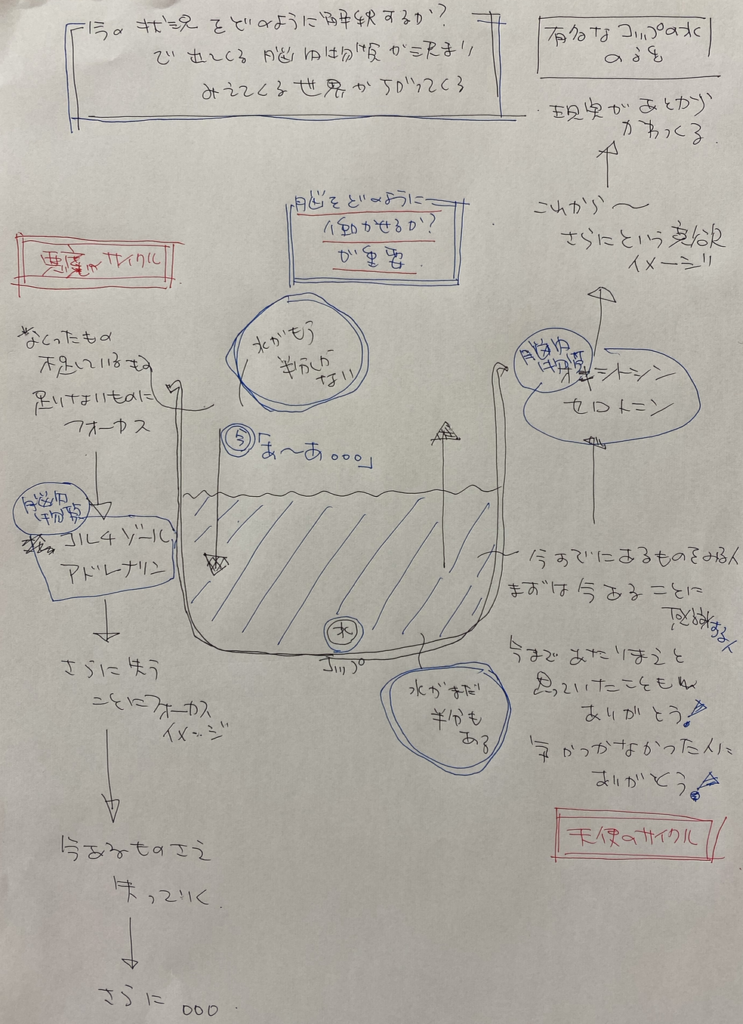 今の状況をどのように解釈するか?
で出てくる脳内物質が決まり
みえてくる世界がちがってくる
有名なコップの水
の話
現実があとから
かわってくる
これから〜
さらにという意欲
イメージ
脳をどのように
働かせるか?
が重要
悪魔のサイクル
なくったもの
不足しているもの
足りないものに
フォーカス
水がもう
半分しか
ない
「あ〜あ...」
脳内
物質
オキシトシン
セロトニン
脳内
物質
コルチゾール
アドレナリン
今すでにあるものをみる人
まずは今あることに
感謝する人
水
コップ
さらに失う
ことにフォーカス
イメージ
水がまだ
半分も
ある
今まであたりまえと
思っていたことも
ありがとう!
気がつかなかった人に
ありがとう!
天使のサイクル
今あるものさえ
失っていく
さらに...